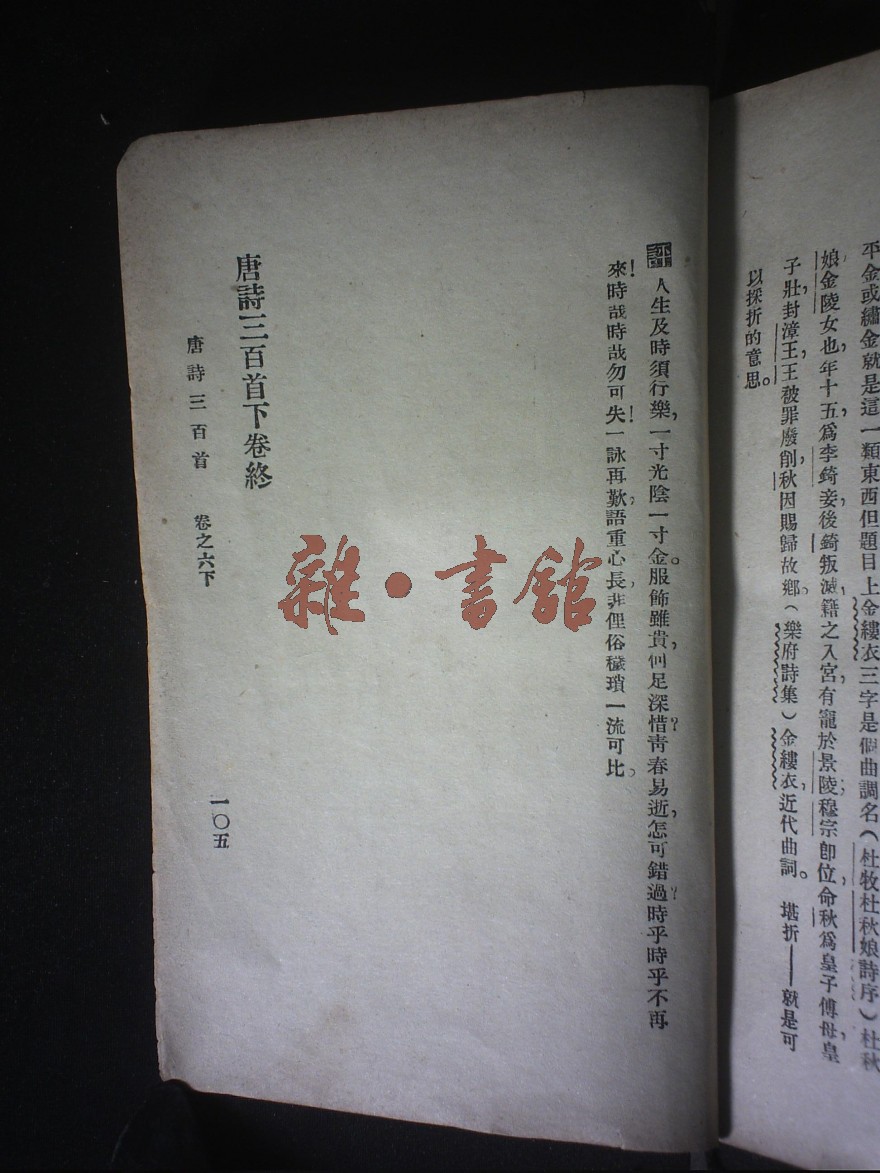 平金或繡金就是這一類東西但題目上金縷衣三字是個曲調名(杜牧杜秋娘詩序)杜秋
娘,金陵女也,年十五,爲李錡妾,後錡叛滅,籍之入宮,有寵於景陵;穆宗卽位,命秋爲皇子傅母,皇
子壯,封漳王,王被罪廢削,秋因賜歸故鄉。(樂府詩集)金縷衣,近代曲詞。 堪折——就是可
以採折的意思。
評 人生及時須行樂,一寸光陰一寸金。服飾雖貴,何足深惜?靑春易逝,怎可錯過?時乎時乎不再
來!時哉時哉勿可失!一詠再歎,語重心長,非俚俗穢瑣一流可比。
唐詩三百首下卷終
唐詩三百首 卷之六下
一〇五
雜·書館